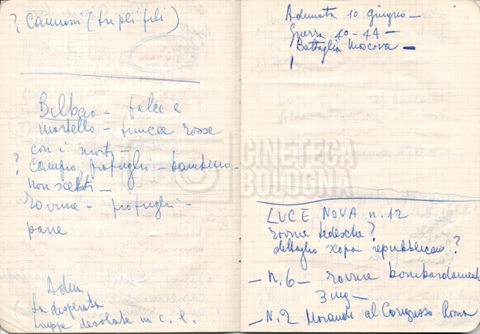 ? Cannoni (tripli fili)
Bilbao - falce e
martello - truccæ rosse
con i morti -
? campo, profughi - bambino -
non scelti -
rovine - profughi -
pane
Aden
la disperata
truppe desolate in c. l.
Adunata 10 giugno -
Guerra 40-44 -
Battaglia Mosova -
CINETECA
BOLOGNA
LUCE NOVA n. 12
rovine tedesche?
dettaglio sopra repubblicano?
- N. 6 - rovine bombardamento
3 ing -
- N. 2 Morandi al Congresso Roma